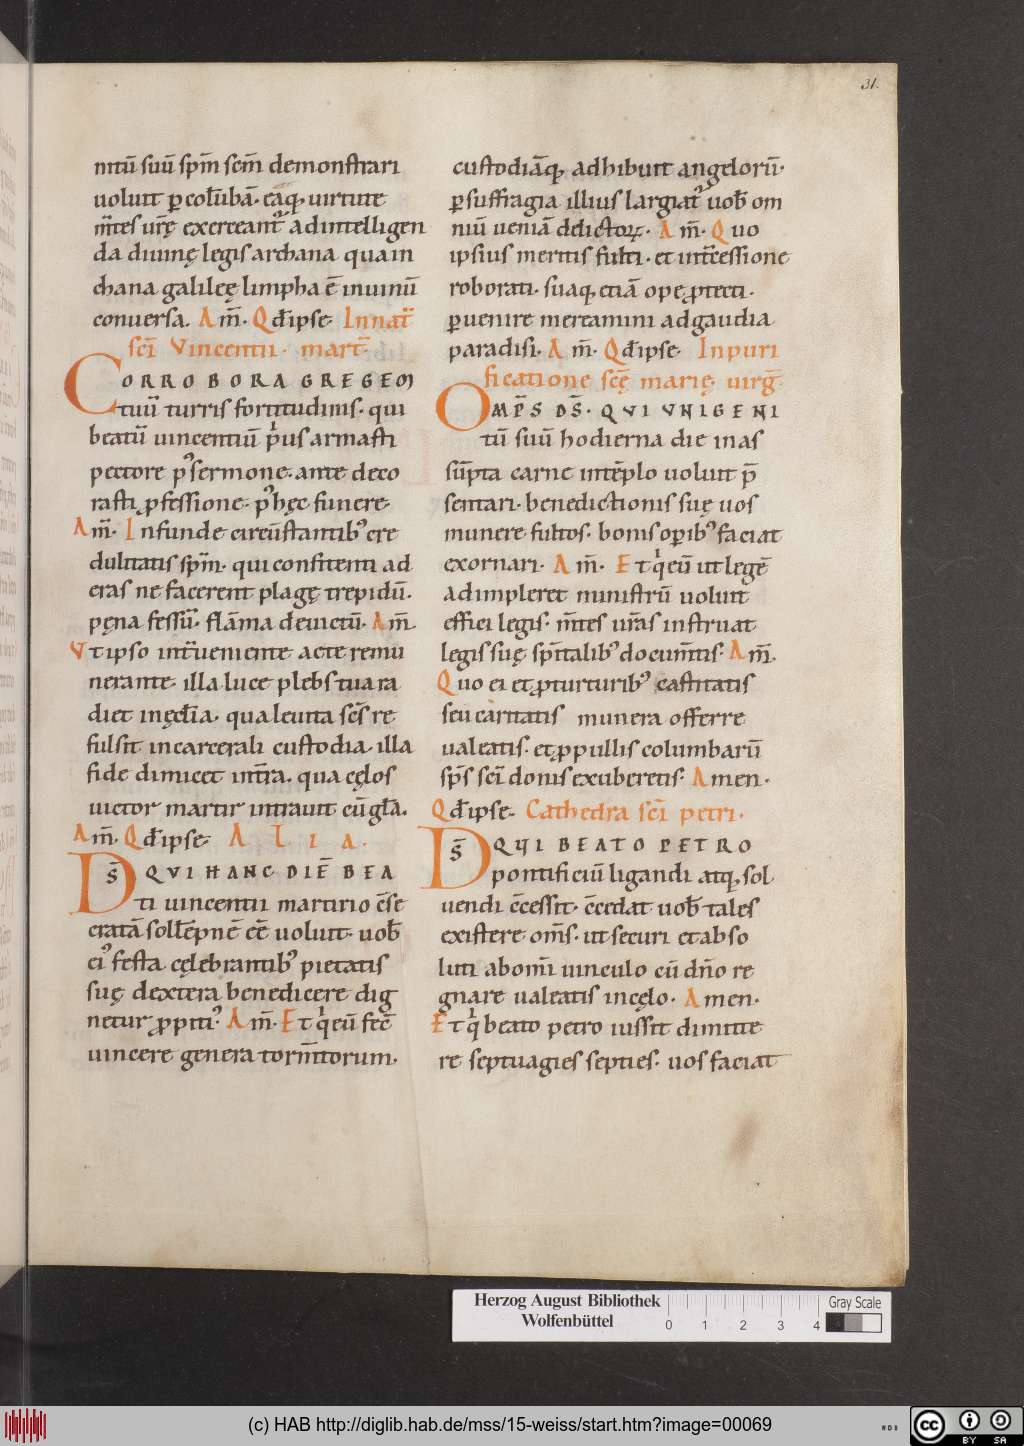 31.
nitū suū spm̄ scm̄ demonstrari
uoluit ꝑ colūbā. eaq; uirtute
m̄tes ur̄ę exerceant᷑ ad intelligen
da diuinę legis archana qua in
chana galileę limpha ē in uinū
conuersa. Am̄. Qd̄ ipse. In nat̄
sc̄i Vincentii. mart̄.
CORROBORA GREGEM
tuū turris fortitudinis. qui
beatū uincentiū p̄us armasti
pectore p᷒ sermone. ante deco
rasti ꝓfessione. p᷒ hęc funere.
Am̄. Infunde circūstantib᷒ cre
dulitatis spm̄. qui confitenti ad
eras ne facerent plagę trepidū.
pęna fessū. flāma deuictū. Am̄.
Vt ipso int̄ueniente ac te remu
nerante. illa luce plebs tua ra
diet in ęcl̄ia. qua leuita sc̄s re
fulsit in carcerali custodia. illa
fide dimicet int̄ra. qua cęlos
uictor martir intrauit cū gl̄a.
Am̄. Qd̄ ipse. ALIA.
DS̄ QVI HANC DIĒ BEA
ti uincentii martirio c̄se
cratā soll̄ēpnē eē uoluit. uob̄
ei᷒ festa cęlebrantib᷒ pietatis
suę dextera benedicere dig
netur ꝓpiti᷒. Am̄. Et qͥ eū fec̄
uincere genera torm̄torum.
custodiāq; adhibuit angelorū.
ꝑ suffragia illius largiat᷑ uob̄ om
niū ueniā delictoꝝ. Am̄. Quo
ipsius meritis fulti. et int̄cessione
roborati. suaq; etiā ope ꝓtecti.
ꝑuenire mereamini ad gaudia
paradisi. Am̄. Qd̄ ipse. In puri
ficatione sc̄ę marię uirḡ.
OMP̄S DS̄. QVI VNIGENI
tū suū hodierna die in as
sūpta carne in tēplo uoluit p̄
sentari. benedictionis suę uos
munere fultos. bonis oꝑib᷒ faciat
exornari. Am̄. Et qͥ eū ut legē
adimpleret ministrū uoluit
effici legis. m̄tes ur̄as instruat
legis suę sp̄italib᷒ docum̄tis. Am̄.
Quo ei et ꝓ turturib᷒ castitatis
seu caritatis munera offerre
ualeatis. et ꝓ pullis columbarū
sp̄s sc̄i donis exuberetis. Amen.
Qd̄ ipse. Cathedra sc̄i petri.
DS̄ QVI BEATO PETRO
pontificiū ligandi atq; sol
uendi c̄cessit. c̄cedat uob̄ tales
existere om̄s. ut securi et abso
luti ab om̄i uinculo cū dn̄o re
gnare ualeatis in cęlo. Amen.
Et qͥ beato petro iussit dimitte
re septuagies septies. uos faciat
Herzog August Bibliothek
Wolfenbüttel
0 1 2 3 4
Gray Scale
(c) HAB http://diglib.hab.de/mss/15-weiss/start.htm?image=00069
cc BY SA